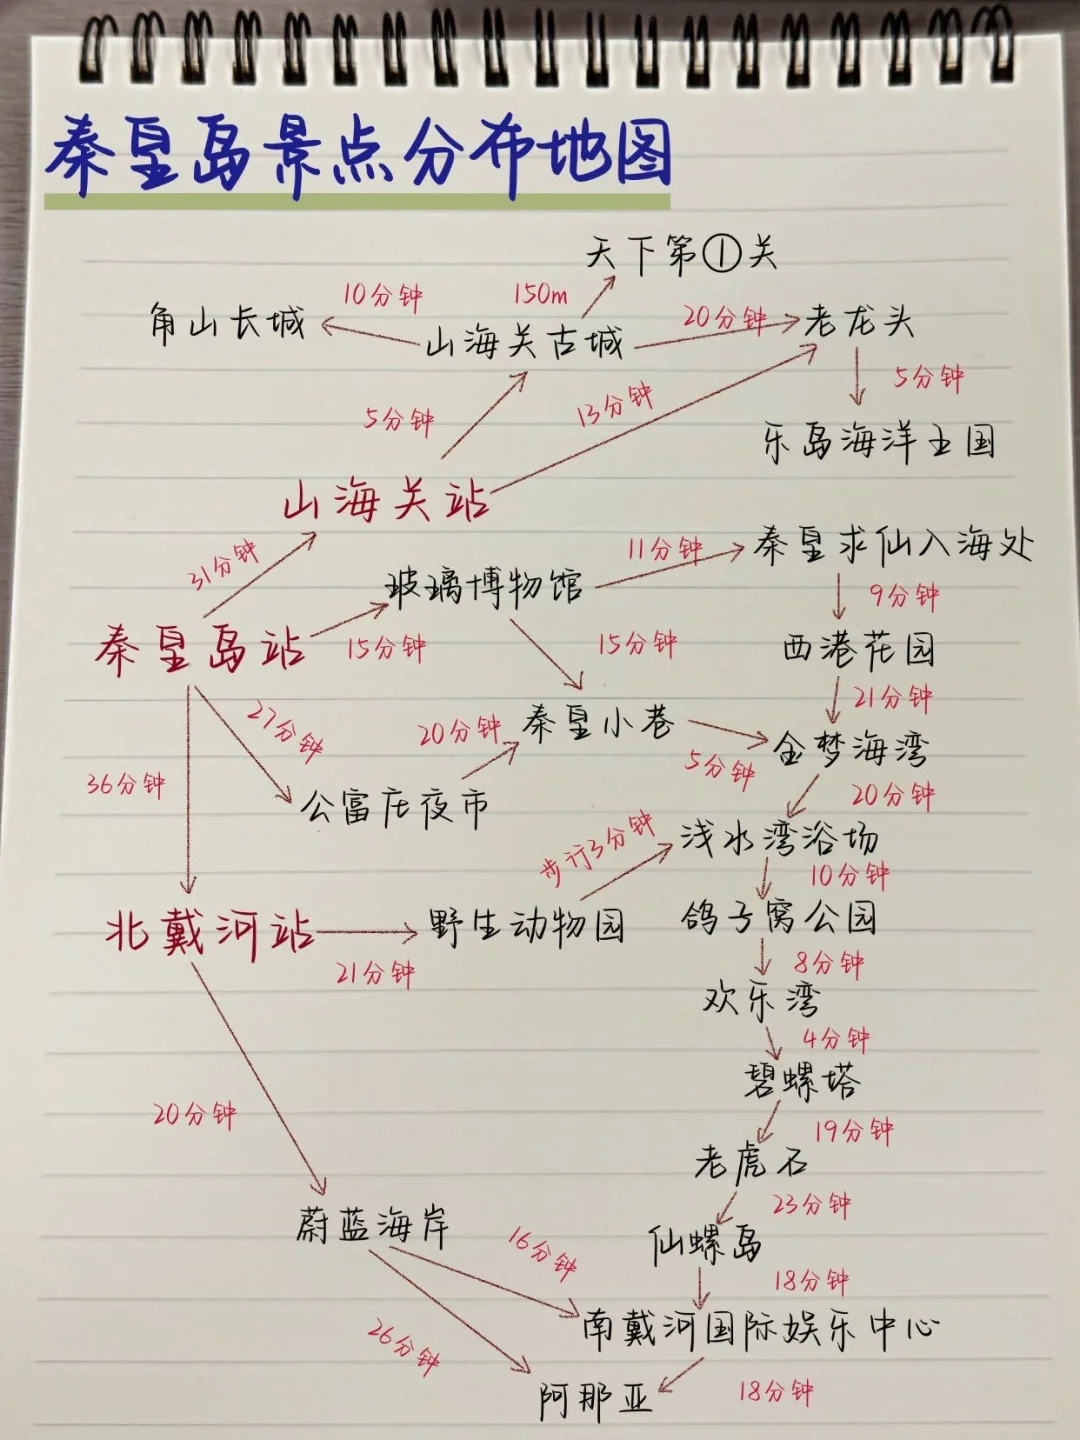 秦皇岛景点分布地图
天下第①关
10分钟
150m
角山长城
山海关古城
20分钟
老龙头
5分钟
5分钟
13分钟
乐岛海洋王国
山海关站
31分钟
11分钟
秦皇求仙入海处
玻璃博物馆
9分钟
秦皇岛站
15分钟
15分钟
西港花园
27分钟
20分钟
秦皇小巷
21分钟
金梦海湾
5分钟
36分钟
公富庄夜市
20分钟
步行3分钟
浅水湾浴场
10分钟
北戴河站
野生动物园
鸽子窝公园
21分钟
8分钟
欢乐湾
4分钟
碧螺塔
20分钟
19分钟
老虎石
23分钟
蔚蓝海岸
16分钟
仙螺岛
18分钟
南戴河国际娱乐中心
26分钟
阿那亚
18分钟